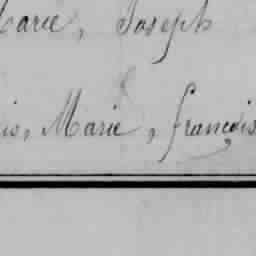 Marie, Joseph
is, Marie, françois